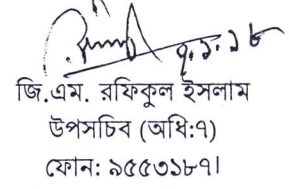 ৭.১.১৮
জি.এম. রফিকুল ইসলাম
উপসচিব (অধি:৭)
ফোন: ৯৫৫৩১৮৭।